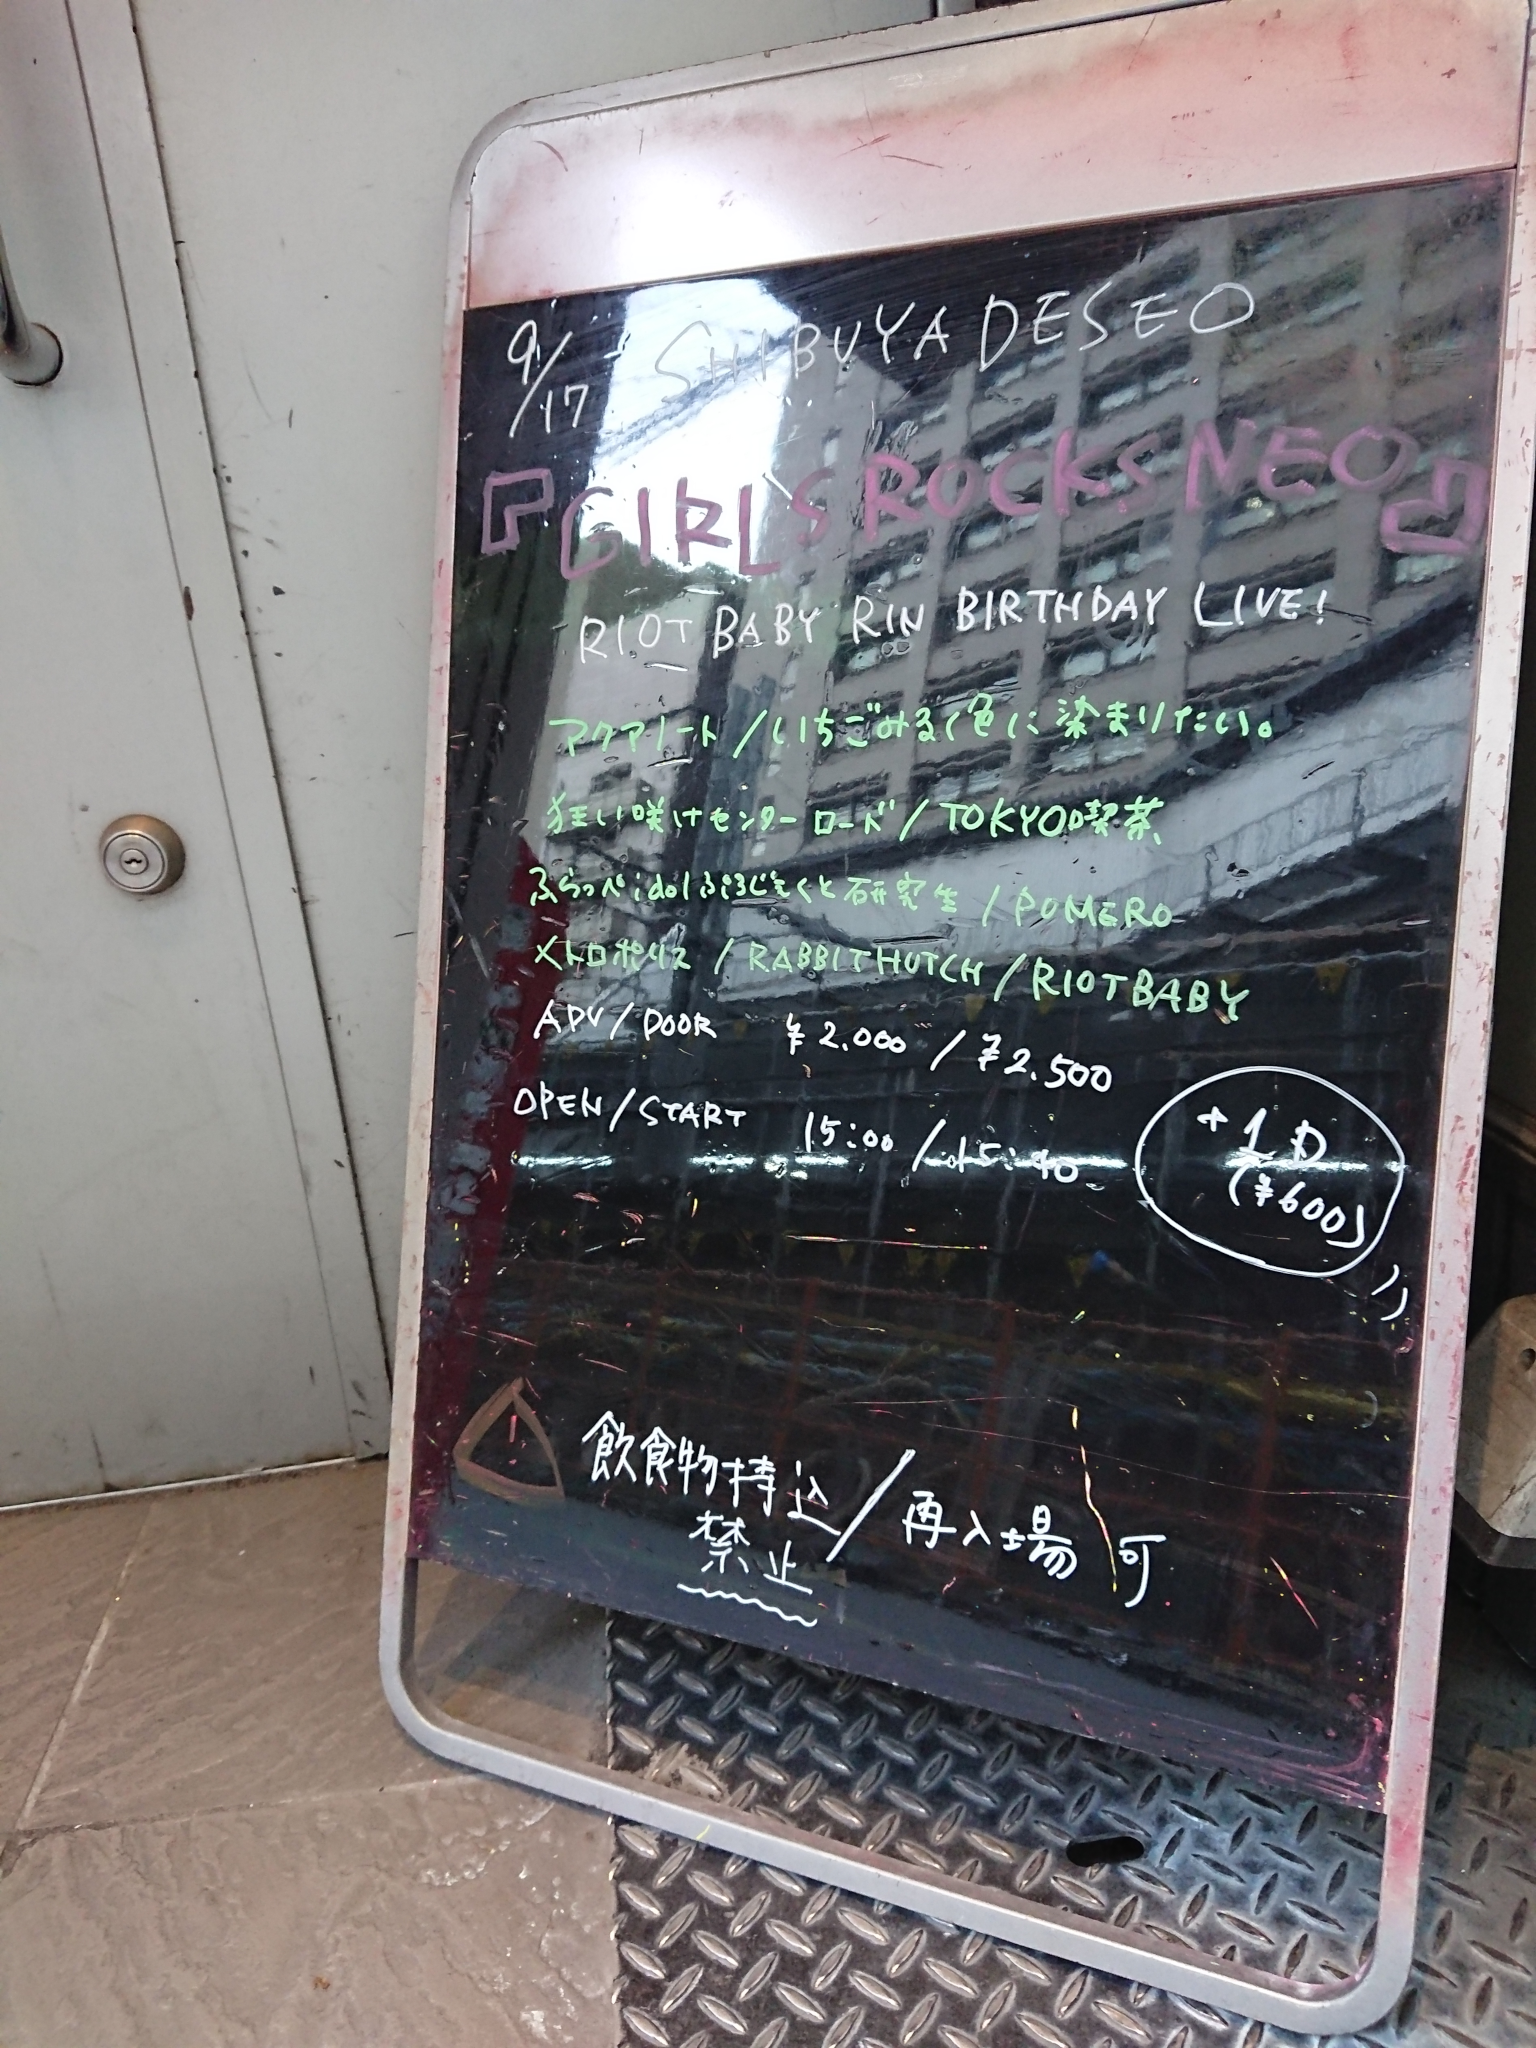 9/17 SHIBUYA DESEO
『GIRLS ROCKS NEO』
RIOT BABY RIN BIRTHDAY LIVE!
アクアノート/いちごみるく色に染まりたい。
狂い咲けセンターロード/TOKYO喫茶
ふらっぺidolぷろじぇくと研究生/POMERO
メトロポリス/RABBITHUTCH/RIOTBABY
ADV/DOOR ¥2.000/¥2.500
OPEN/START 15:00/15:40
+1D
(¥600)
飲食物持込/再入場可
禁止